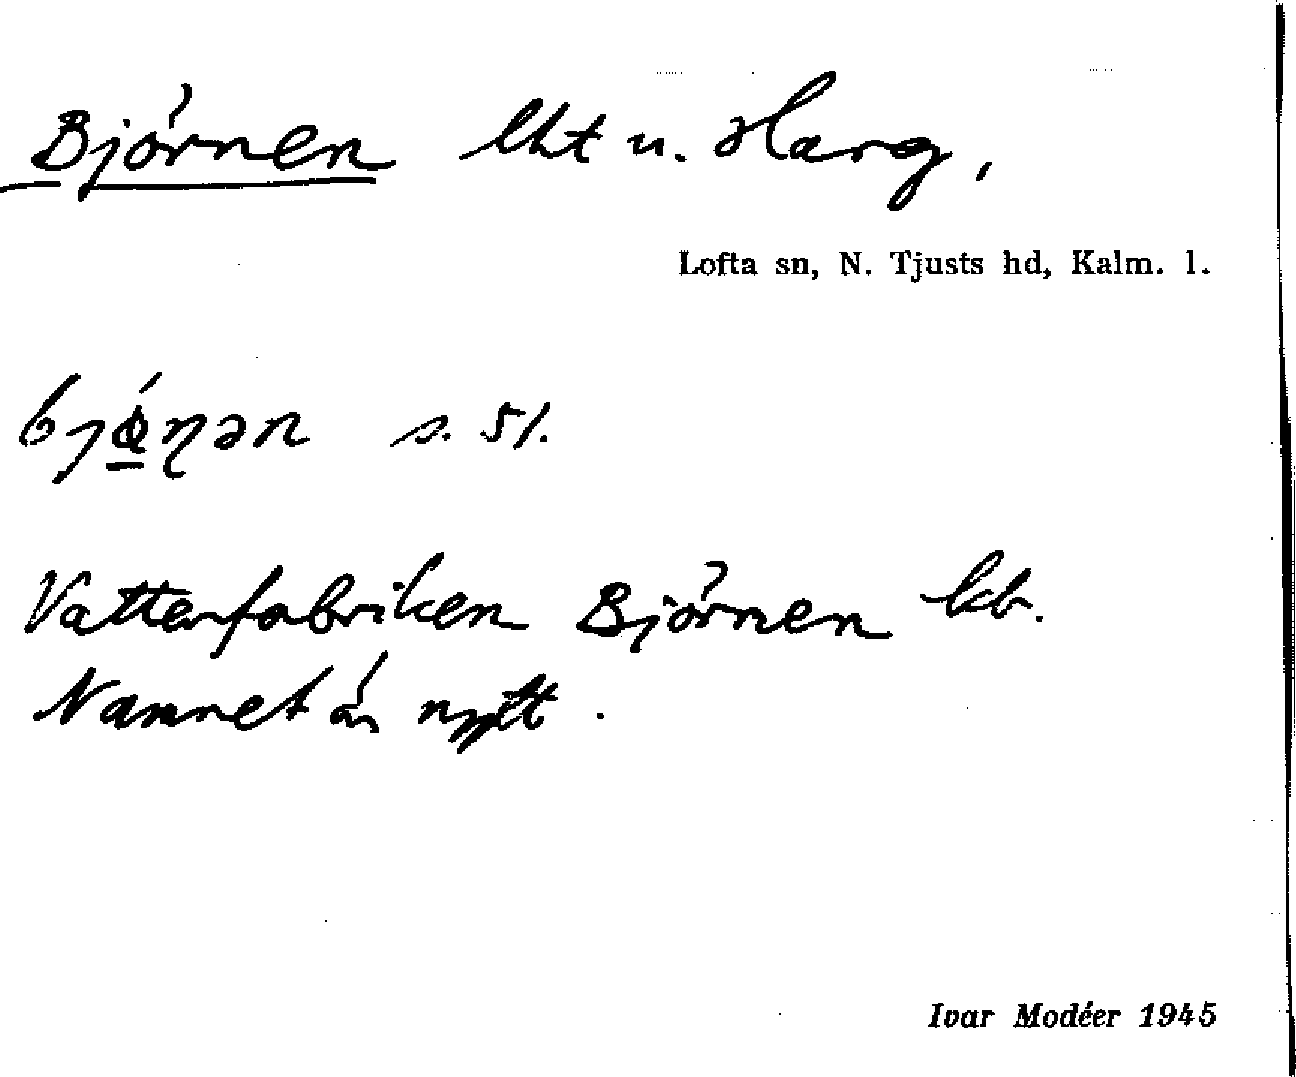 Björnen lht u. Harg,
Lofta sn, N. Tjusts hd, Kalm. l.
s. 51.
Vattenfabriken Björnen kb.
Namnet är nytt.
Ivar Modéer 1945